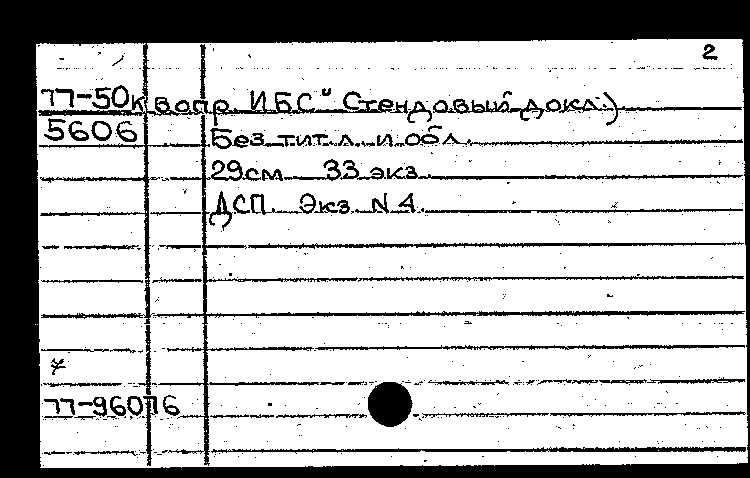 2
77-50к вопр. ИБС" Стендовый докл.)
5606 Без тит. л. и обл.
29см 33 экз.
ДСП. Экз. N 4.
77-96076